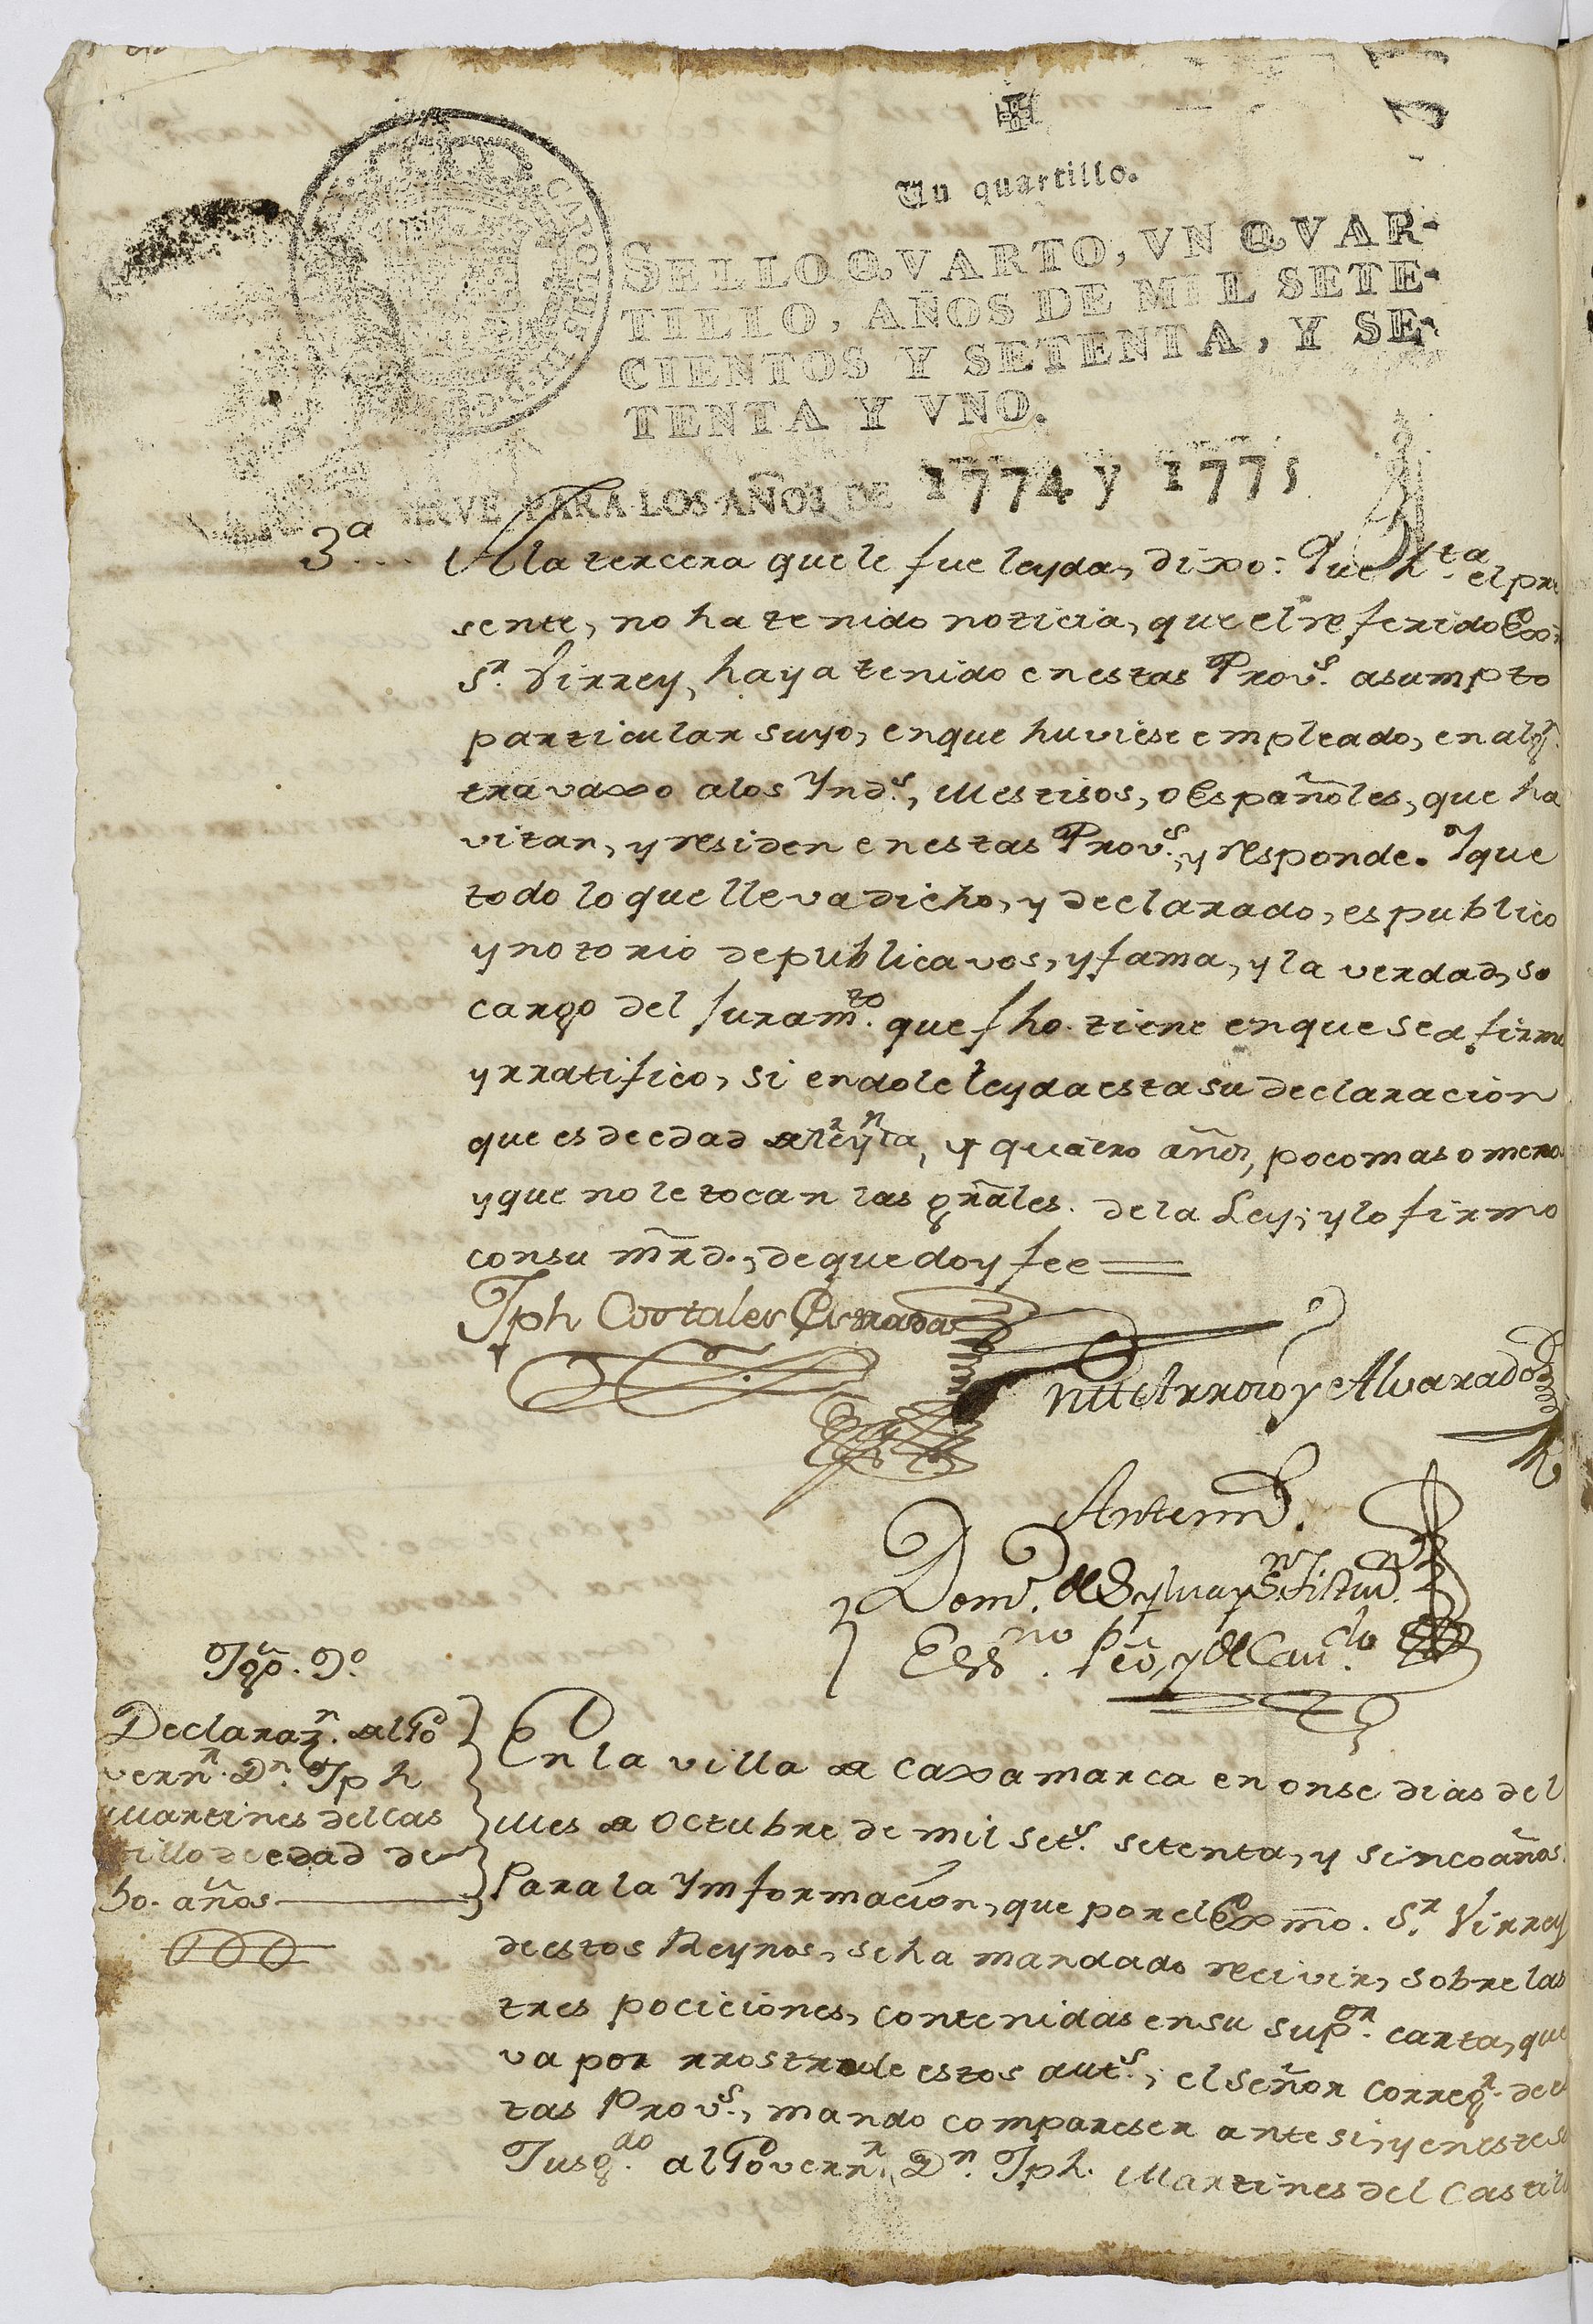 Un quartillo.
SELLO QVARTO, VN QVAR-
TILLO, AÑOS DE MIL SETE-
CIENTOS Y SETENTA, Y SE-
TENTA Y VNO.
SIRVE PARA LOS AÑOS DE 1774 y 1775
3ª... A la tercera que le fue leyda, dixo: Que hta. el pre
sente, no ha tenido noticia, que el referido Exmo.
Sr. Virrey, haya tenido en estas Provs. asumpto
particular suyo, en que huviese empleado, en algn.
travaxo a los Ynds., Mestisos, o Españoles, que ha
vitan, y residen en estas Provs., y responde. Y que
todo lo que lleva dicho, y declarado, es publico
y notorio de publica vos, y fama, y la verdad, so
cargo del Juramto. que fho. tiene en que se afirmo
y rratifico, siendole leyda esta su declaracion
que es de edad de treynta, y quatro años, poco mas o menos
y que no le tocan las grãles. de la Ley; y lo firmo
con su mrd., de que doy fee =
Jph Cortales Estrada
Arroio y Alvarado
Antemi.
Domo. de Sylva y Sn. Tistevan.
Essno. pco. y de Cavdo.
Tgo. 9º
Declarazn. del Go
vernr. Dn. Jph
Martines del Cas
tillo de edad de
60. años
En la villa de Caxamarca en onse dias del
Mes de Octubre de mil sets. setenta, y sinco años.
Para la Ymformacion, que por el Exmõ. Sr. Virrey
de estos Reynos, se ha mandado recivir, sobre las
tres pociciones, contenidas en su supor. carta, que
va por rrostro de estos auts., el señor corregr. de es
tas Provs., mando compareser ante si, y en este su
Jusgdo. al Governr. Dn. Jph. Martines del Castill